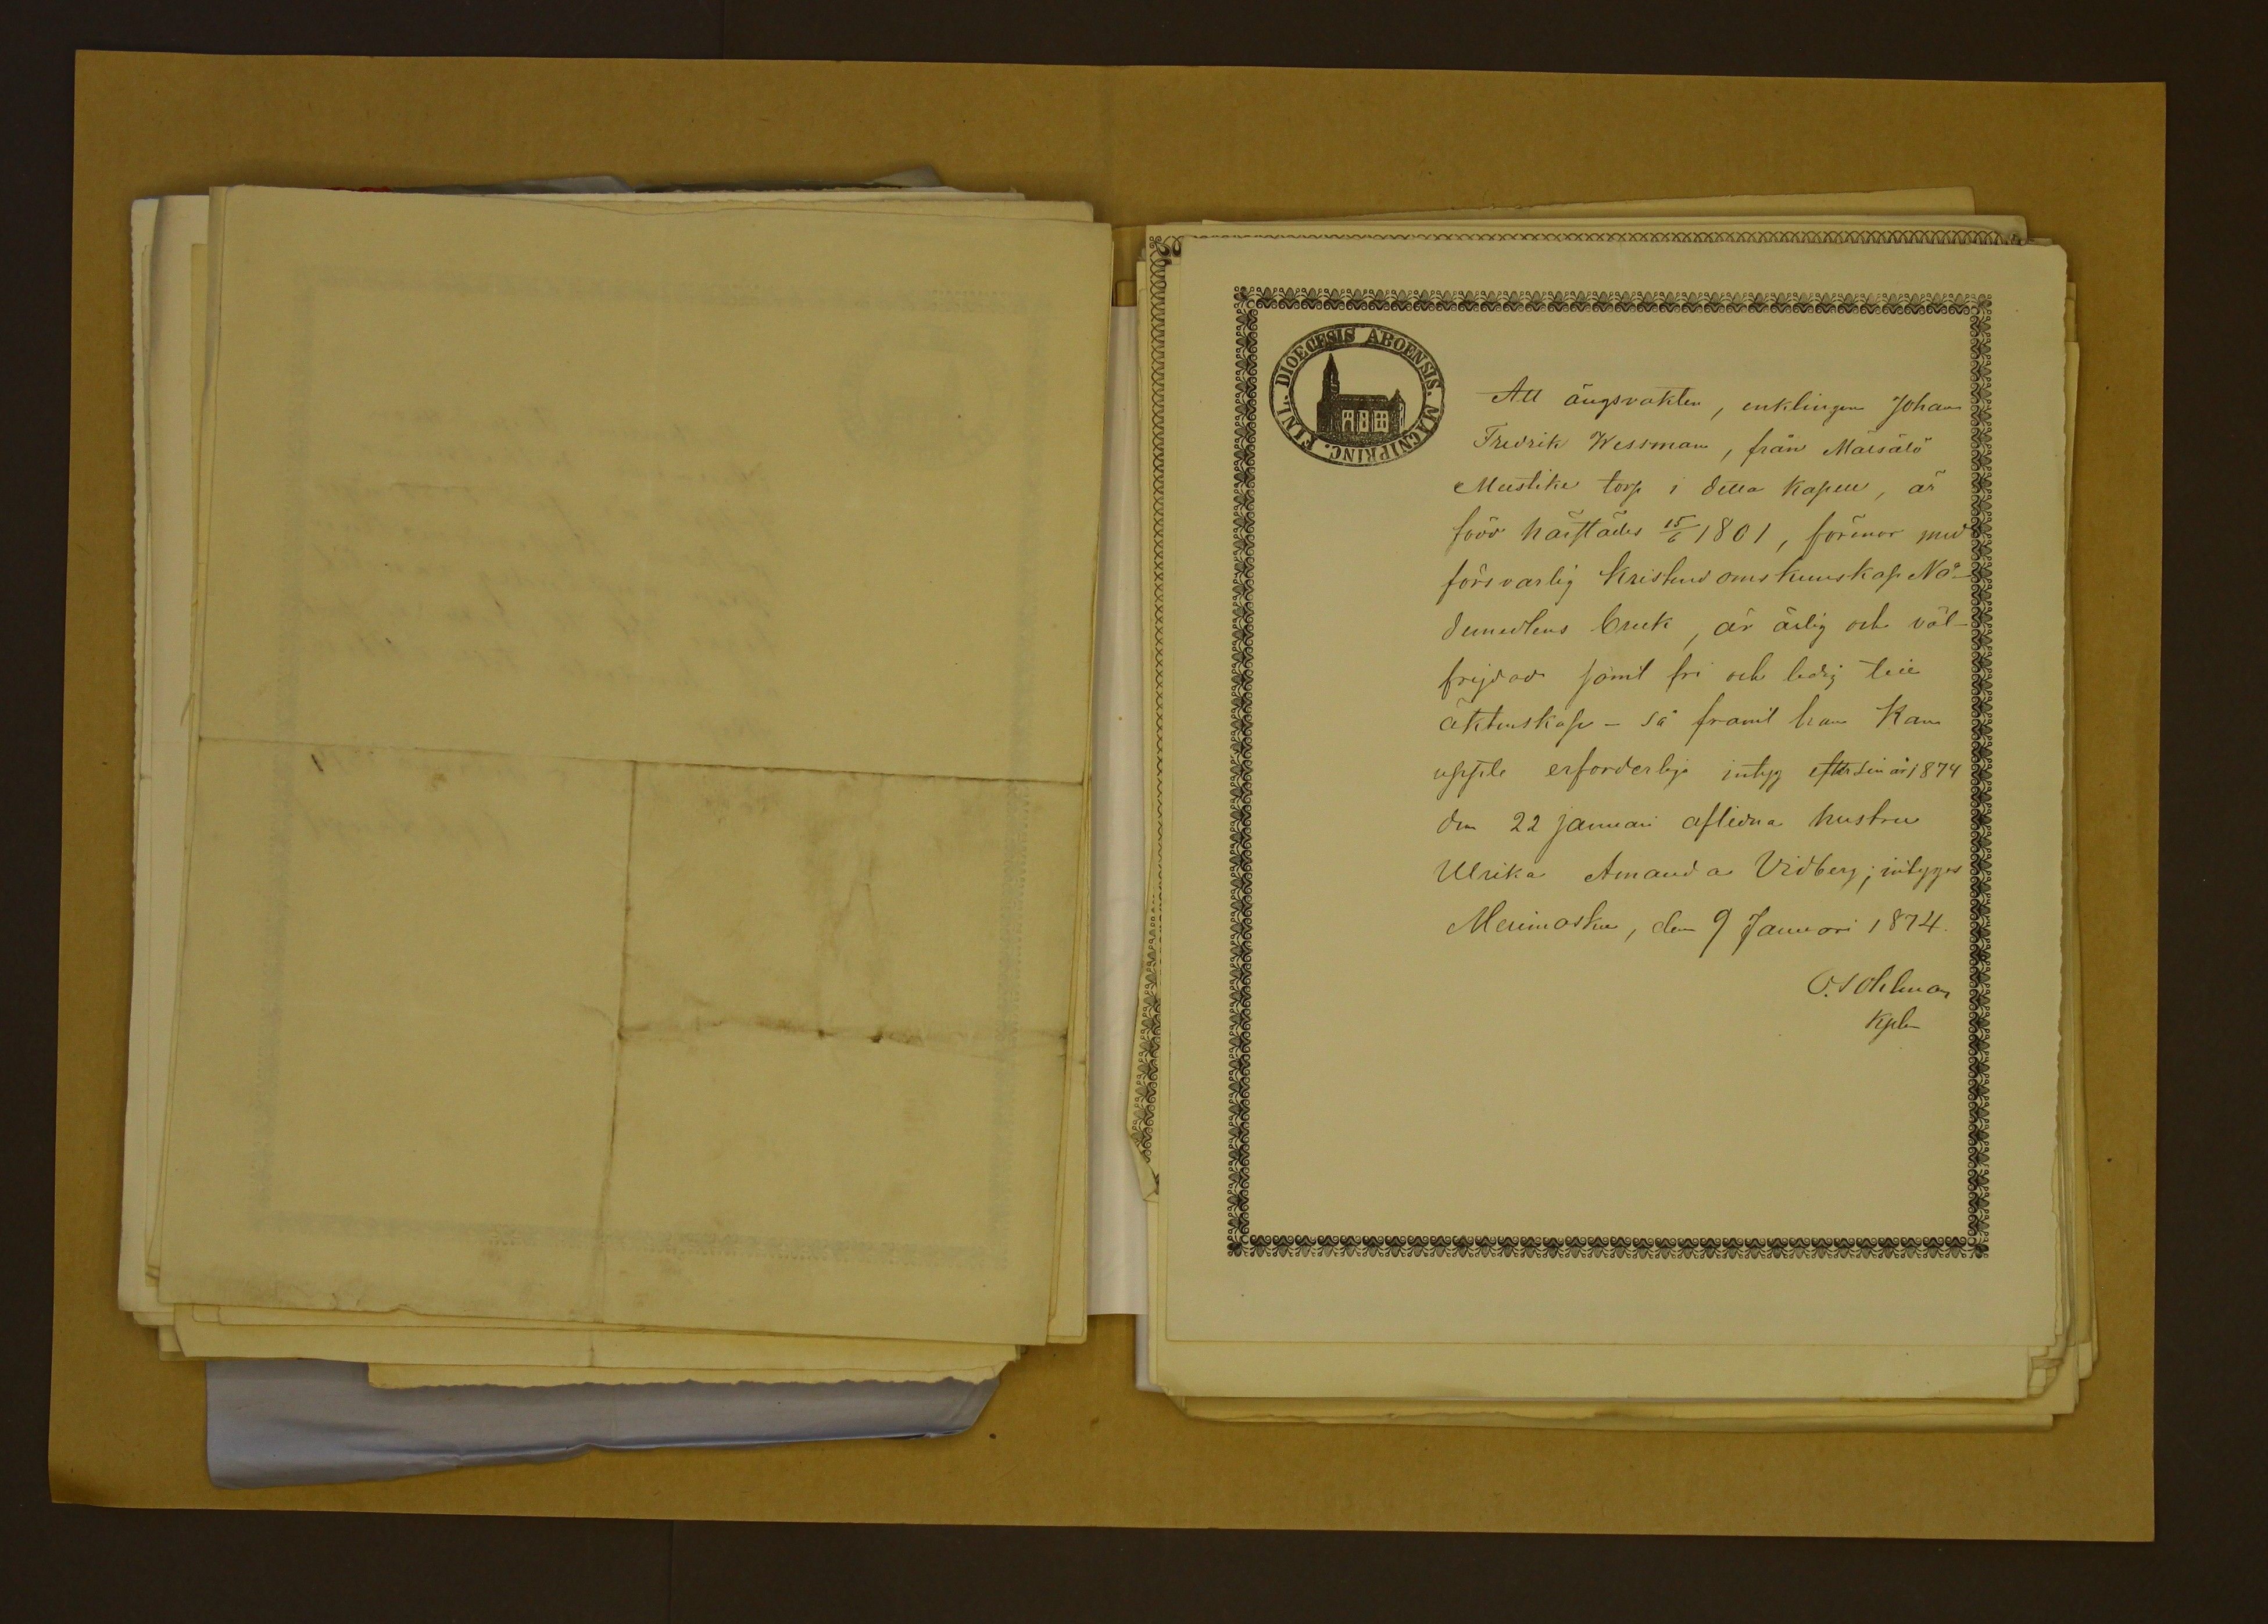 DIOECESIS ABOENSIS. MAGNIPRINC. FINL.
Att ängsvakten, enklingen Johan
Fredrik Wessman, från
torp i detta kapell, är
född härstädes 15/6 1801, med
försvarlig kristendomskunskap Nå-
demedlens bruk, är ärlig och väl-
frejdad samt fri och ledig till
äktenskap - så framt han kan
uppte erforderlig intyg efter sin år 1874
den 22 januari aflidna hustru
Ulrika Amanda Vidberg; intygges
Merimasku, den 9 Januari 1874.
Kpln